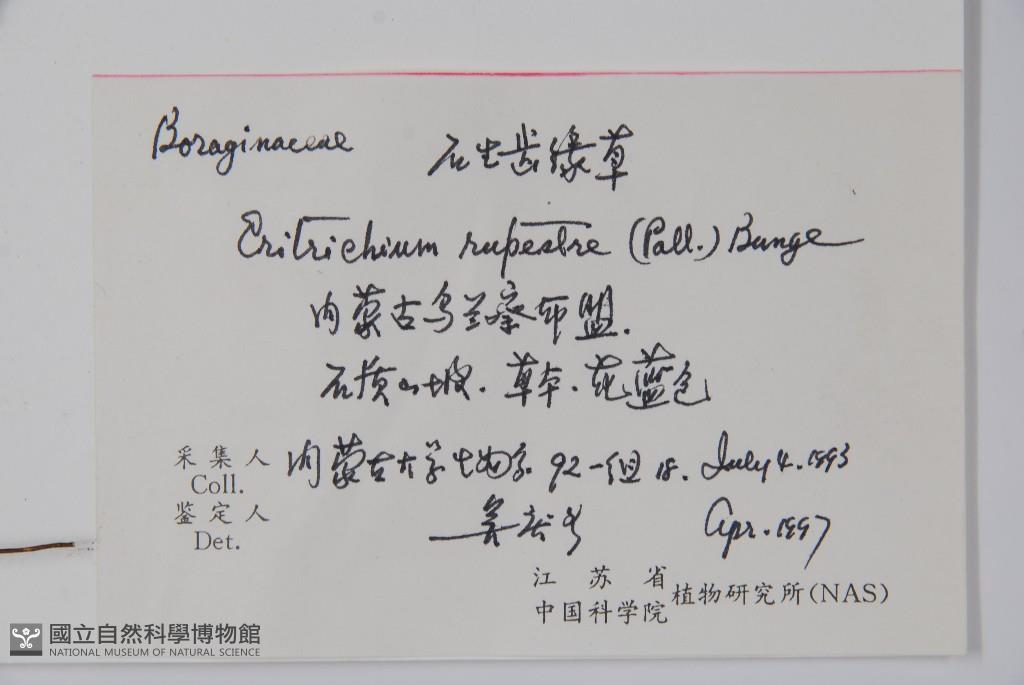 Boraginaceae 石生齿缘草
Eritrichium rupestre (Pall.) Bunge
内蒙古乌兰察布盟.
石质山坡. 草本. 花蓝色
采集人 内蒙古大学生物系 92-组 18. July 4. 1993
Coll.
鉴定人 Apr. 1997
Det.
江苏省
中国科学院 植物研究所(NAS)
國立自然科學博物館
NATIONAL MUSEUM OF NATURAL SCIENCE